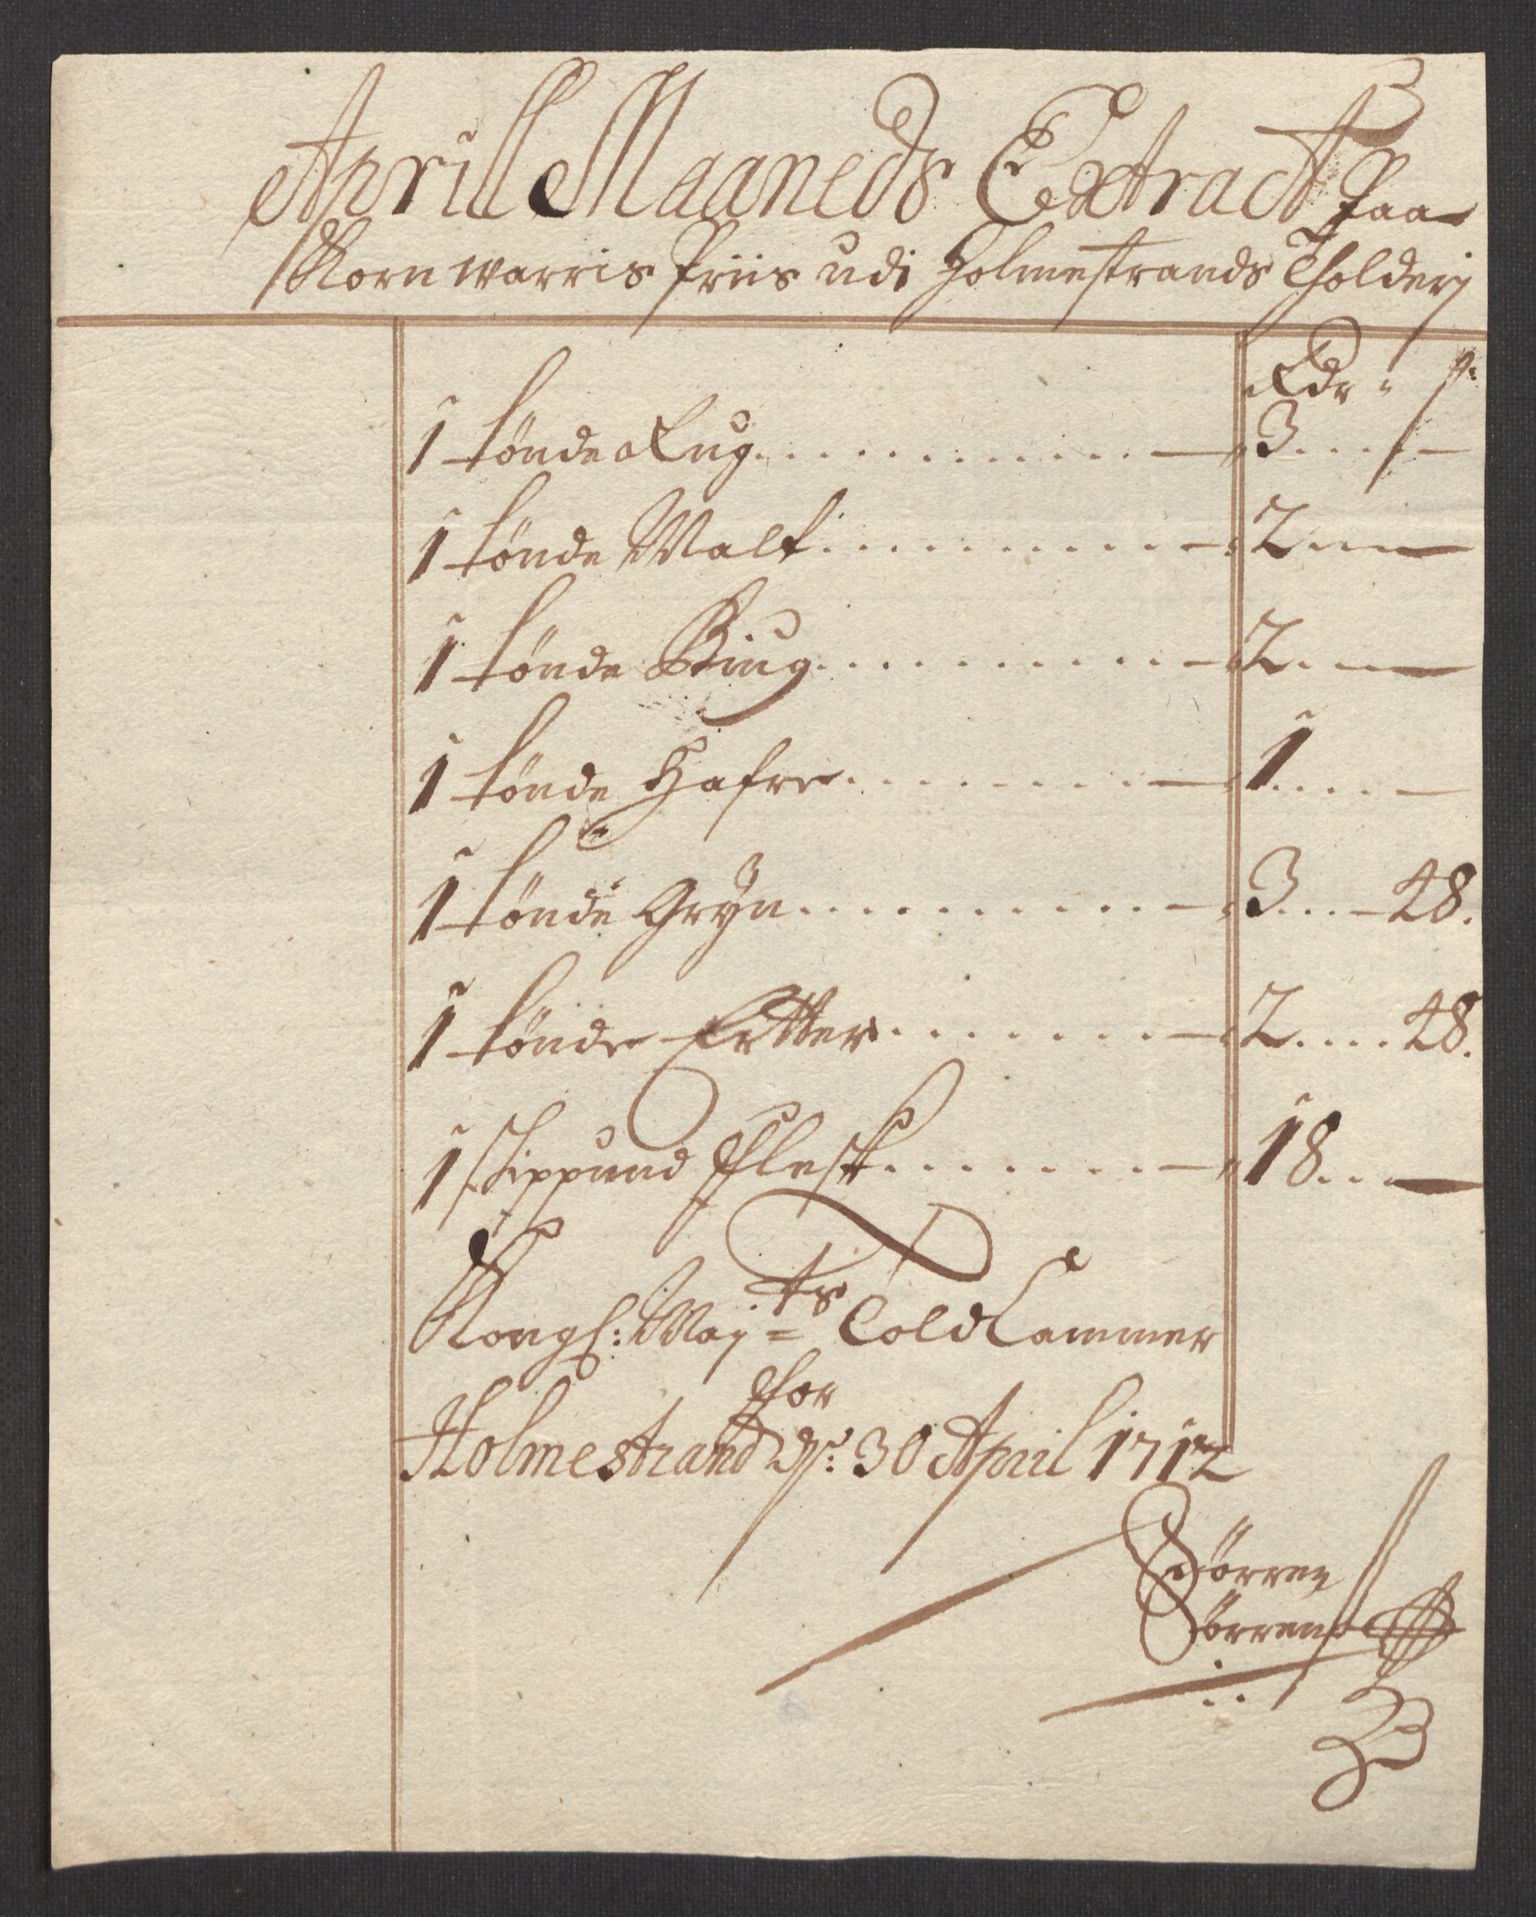 Aprill Maaneds Extract Paa
Kornwarris Priis udi Holmestrands Tholderj
Rdr " s:
1 tønde Rug 3
1 tønde Malt 2
1 tønde Biug 2
1 tønde Hafre 1
1 tønde Gryn 3 48.
1 tønde Ertter 2 48.
1 Skippund Flesk 18
Kongl: Maj=ts Told Cammer
for
Holmestrand d: 30 April 1712
Sørren
Sørrens